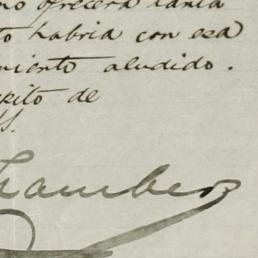 no ofrecerá tanta
to habria con esa
miento aludido.
de
S.
hamber